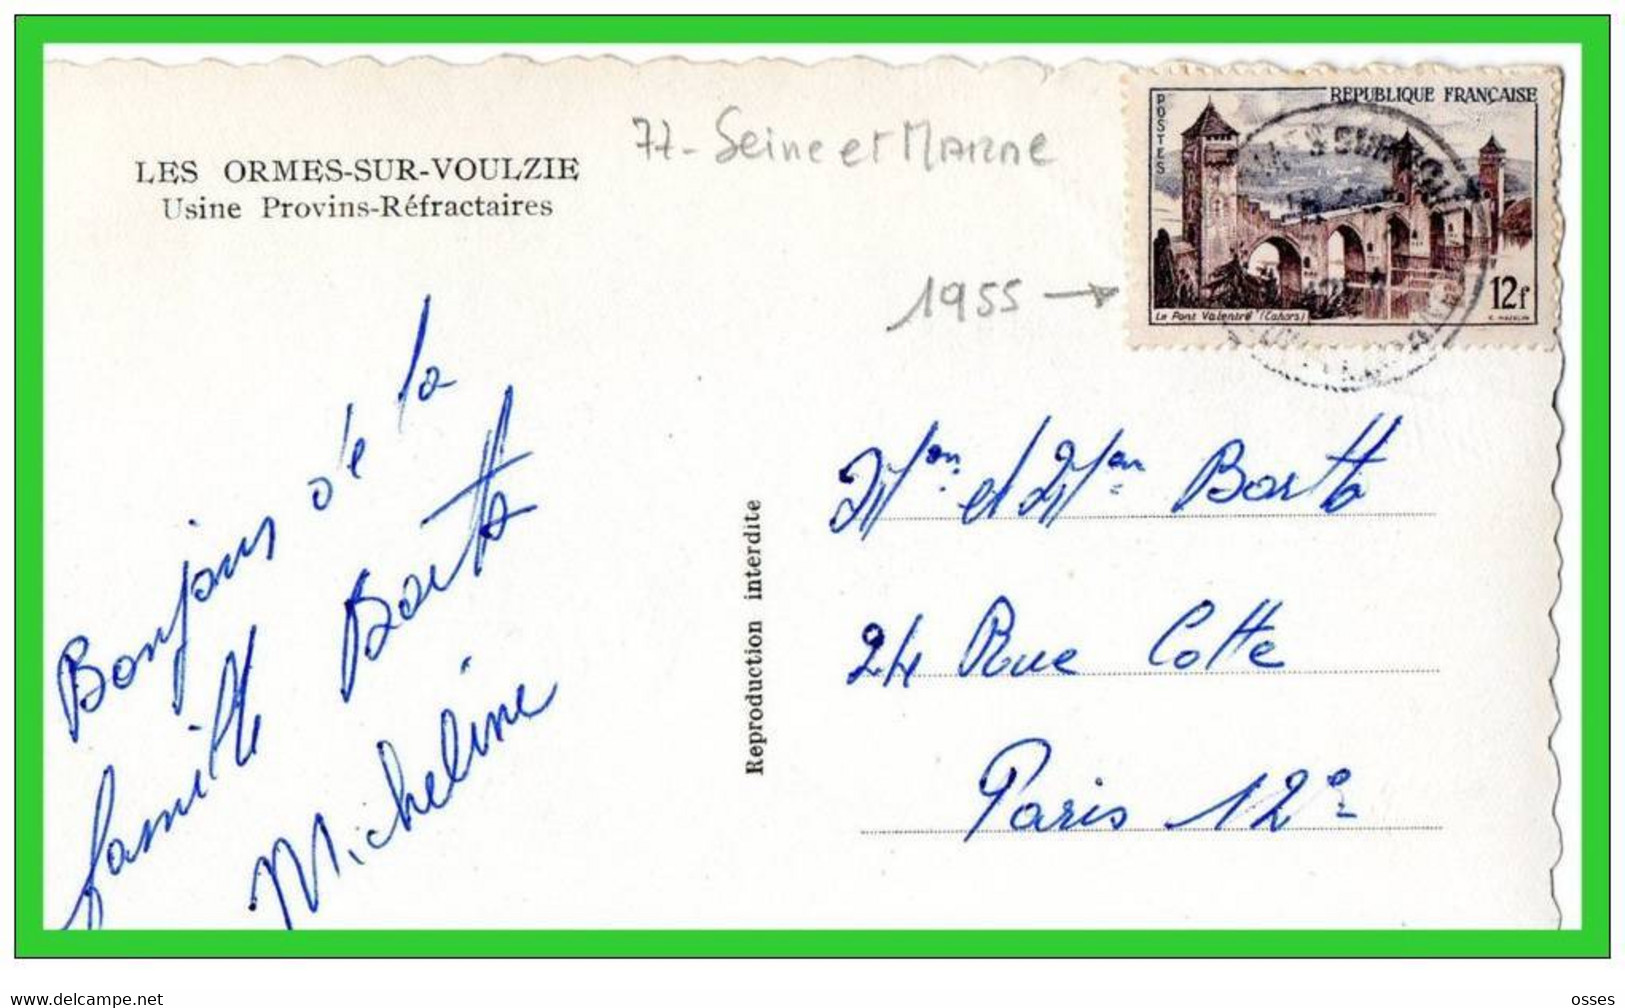 LES ORMES-SUR-VOULZIE
Usine Provins-Réfractaires
77 - Seine et Marne
1955 →
POSTES
REPUBLIQUE FRANÇAISE
12f
Le Pont Valentré (Cahors)
Bonjour de la
famille Bartz
Micheline
Reproduction interdite
et
24 Rue Cotte
Paris 12e
www.delcampe.net
osses